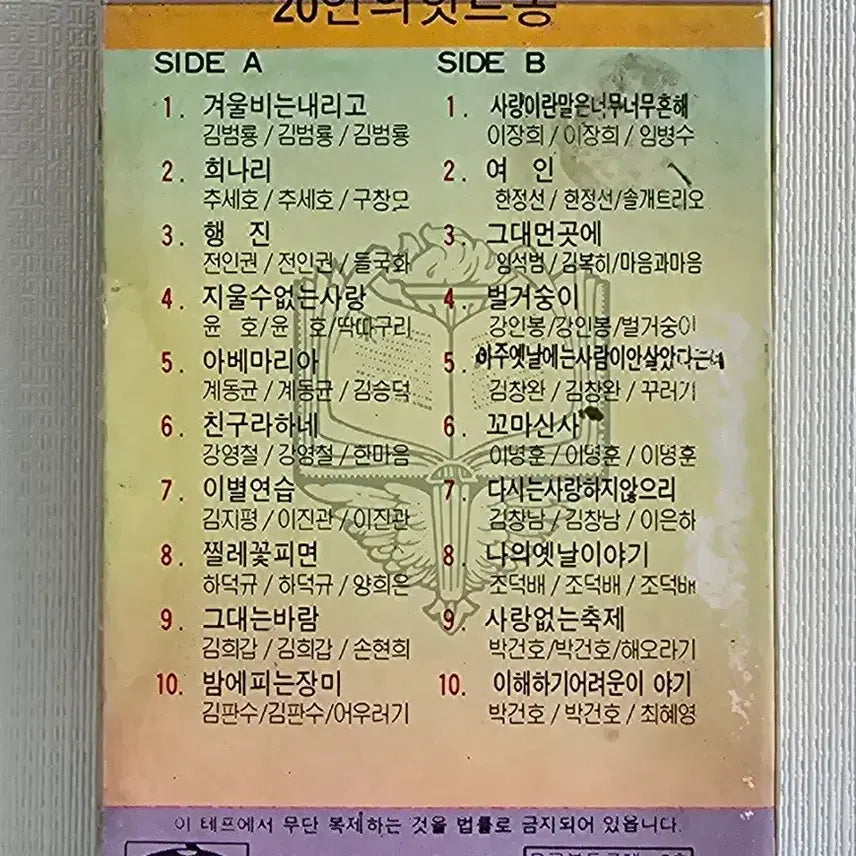 20인의힛트송
SIDE A
1. 겨울비는내리고
김범룡 / 김범룡 / 김범룡
2. 희나리
추세호 / 추세호 / 구창모
3. 행 진
전인권 / 전인권 / 들국화
4. 지울수없는사랑
윤 호/윤 호/딱따구리
5. 아베마리아
계동균 / 계동균 / 김승덕
6. 친구라하네
강영철 / 강영철 / 한마음
7. 이별연습
김지평 / 이진관 / 이진관
8. 찔레꽃피면
하덕규 / 하덕규 / 양희은
9. 그대는바람
김희갑 / 김희갑 / 손현희
10. 밤에피는장미
김판수/김판수/어우러기
SIDE B
1. 사랑이란말은너무너무흔해
이장희 / 이장희 / 임병수
2. 여 인
한정선 / 한정선/솔개트리오
3. 그대먼곳에
임석범 / 김복히/마음과마음
4. 벌거숭이
강인봉/강인봉/벌거숭이
5. 아주옛날에는사람이안살았다는데
김창완 / 김창완 / 꾸러기
6. 꼬마신사
이병훈 / 이병훈 / 이병훈
7. 다시는사랑하지않으리
김창남 / 김창남 / 이은하
8. 나의옛날이야기
조덕배 / 조덕배 / 조덕배
9. 사랑없는축제
박건호/박건호/해오라기
10. 이해하기어려운이 야기
박건호 / 박건호 / 최혜영
이 테프에서 무단 복제하는 것을 법률로 금지되어 있읍니다.